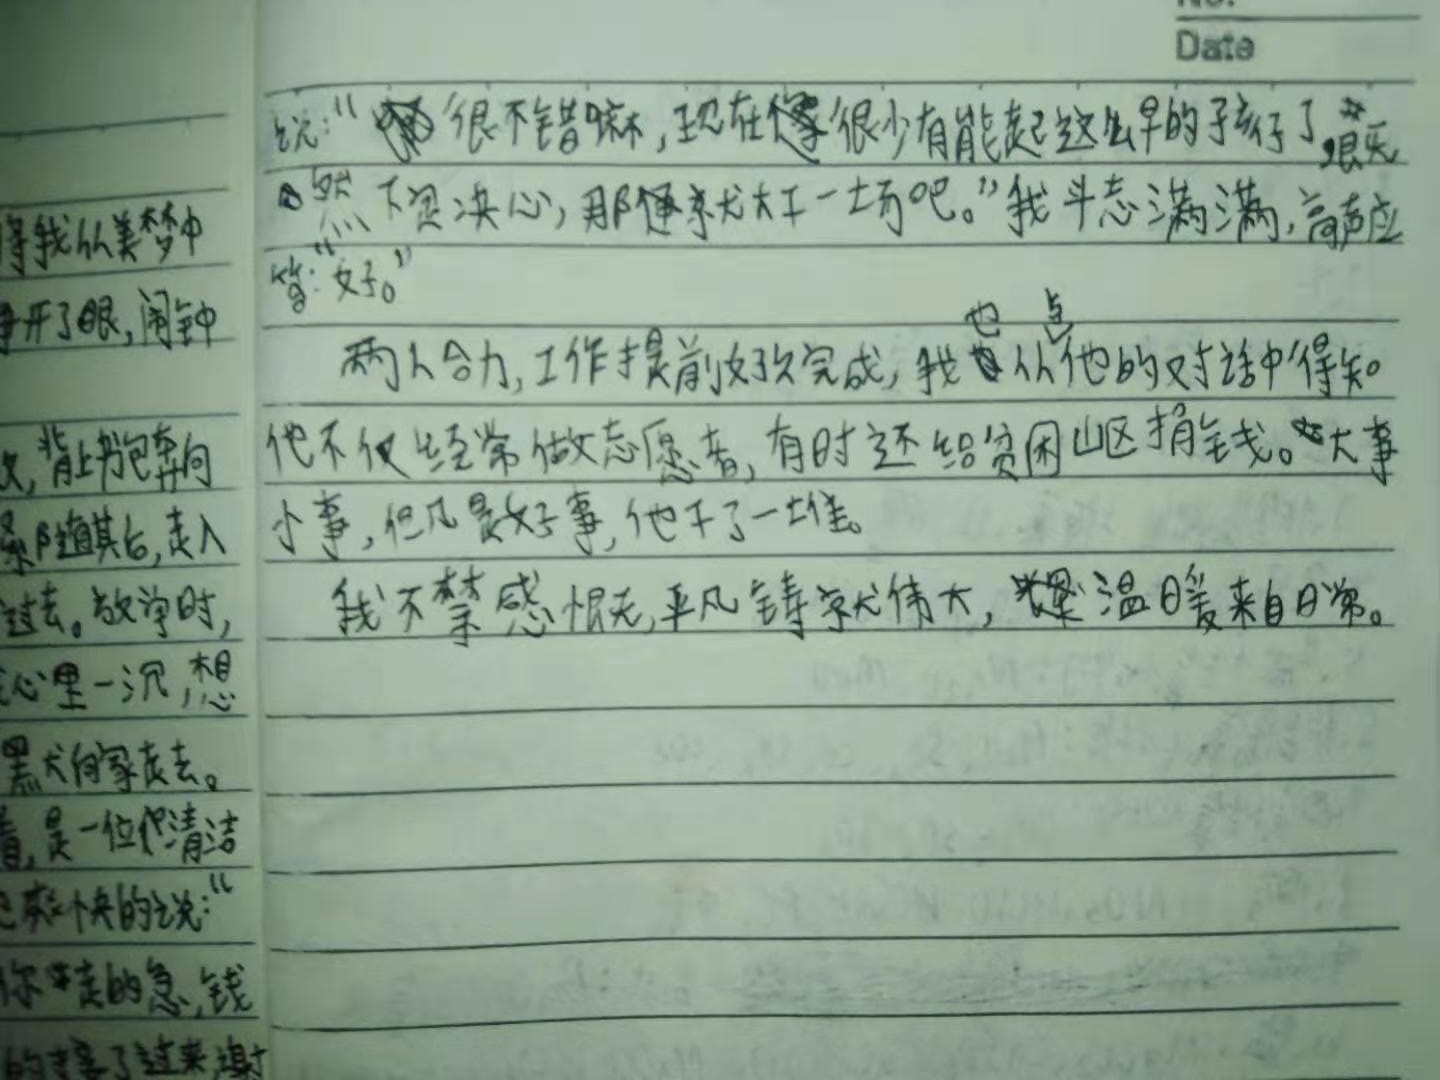 No.
Date
说："很不错嘛，现在很少有能起这么早的孩子了，既
然下定决心，那便就大干一场吧。"我斗志满满，高声应
答："好。"
两人合力，工作提前好次完成，我也从他的对话中得知。
点
他不仅经常做志愿者，有时还给贫困山区捐钱。大事
小事，但凡是好事，他干了一堆。
我不禁感慨，平凡铸就伟大，温暖来自日常。
得我从美梦中
睁开了眼，闹钟
次，背上书包奔向
紧随其后，走入
过去。放学时，
心里一沉，想
黑犬向家走去。
着，是一位清洁
快的说："
你走的急，钱
的接了过来，谢